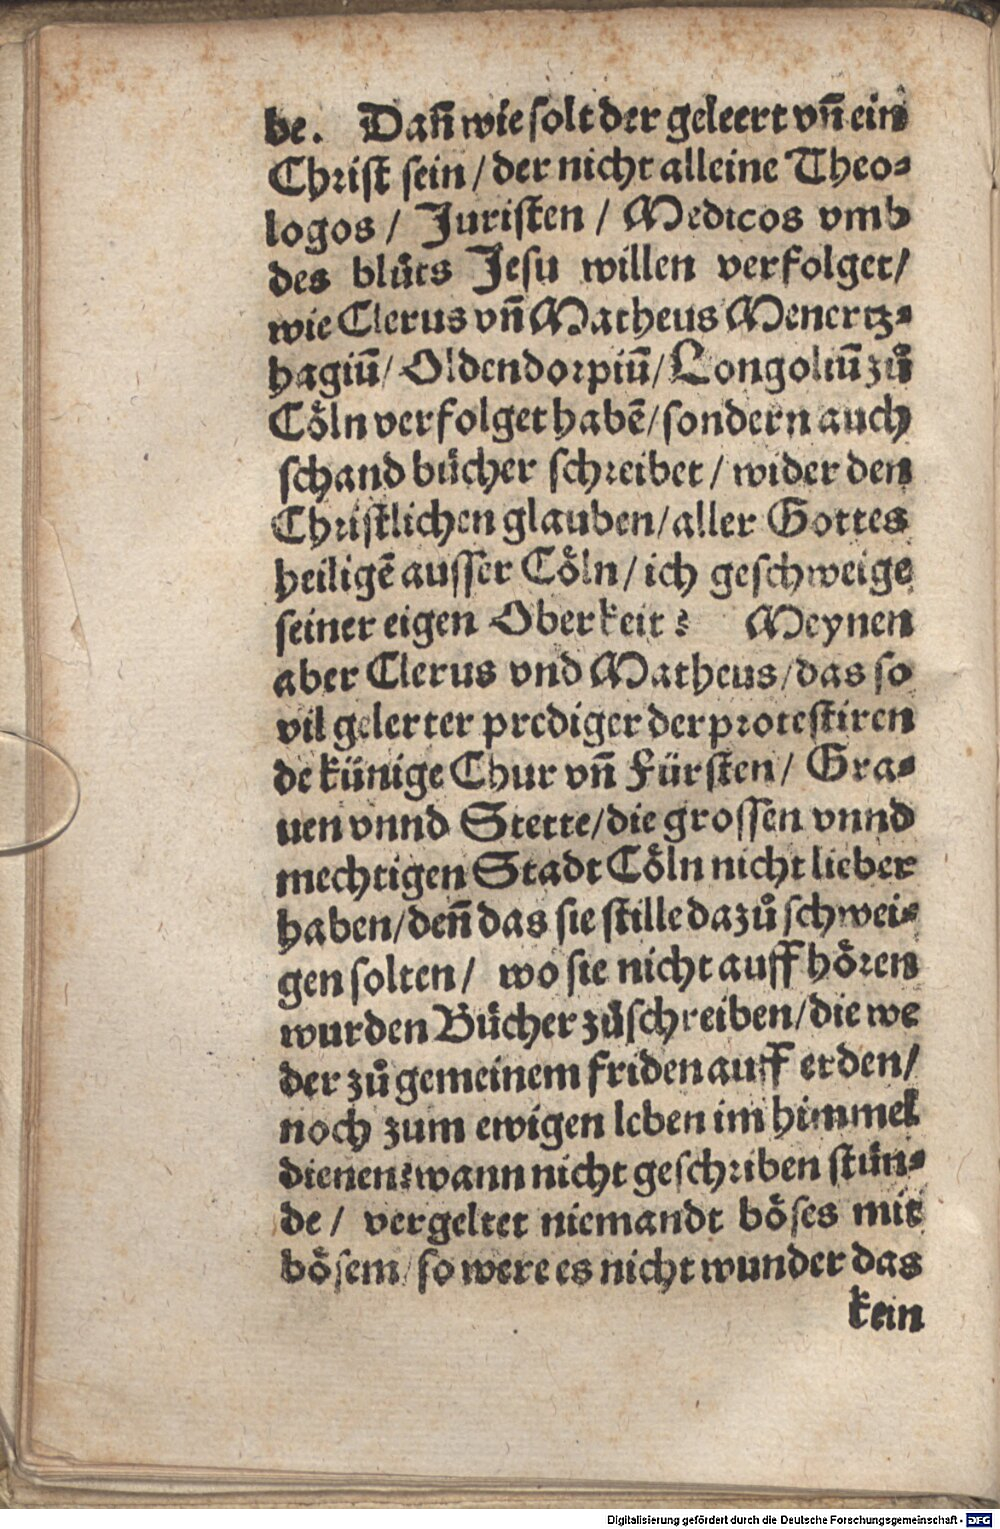 be. Dañ wie solt der geleert vñ ein
Christ sein / der nicht alleine Theo-
logos / Juristen / Medicos vmb
des blůts Jesu willen verfolget /
wie Clerus vñ Matheus Menertz-
hagiū / Oldendorpiū / Longoliū zů
Cöln verfolget habē / sondern auch
schand bücher schreibet / wider den
Christlichen glauben / aller Gottes
heiligē ausser Cöln / ich geschweige
seiner eigen Oberkeit? Meynen
aber Clerus vnd Matheus / das so
vil gelerter prediger der protestiren
de künige Chur vñ Fürsten / Gra-
uen vnnd Stette / die grossen vnnd
mechtigen Stadt Cöln nicht lieber
haben / deñ das sie stille dazů schwei-
gen solten / wo sie nicht auff hören
wurden Bücher zůschreiben / die we
der zů gemeinem friden auff erden /
noch zum ewigen leben im himmel
dienen? wann nicht geschriben stün-
de / vergeltet niemandt böses mit
bösem / so were es nicht wunder das
kein
Digitalisierung gefördert durch die Deutsche Forschungsgemeinschaft - DFG